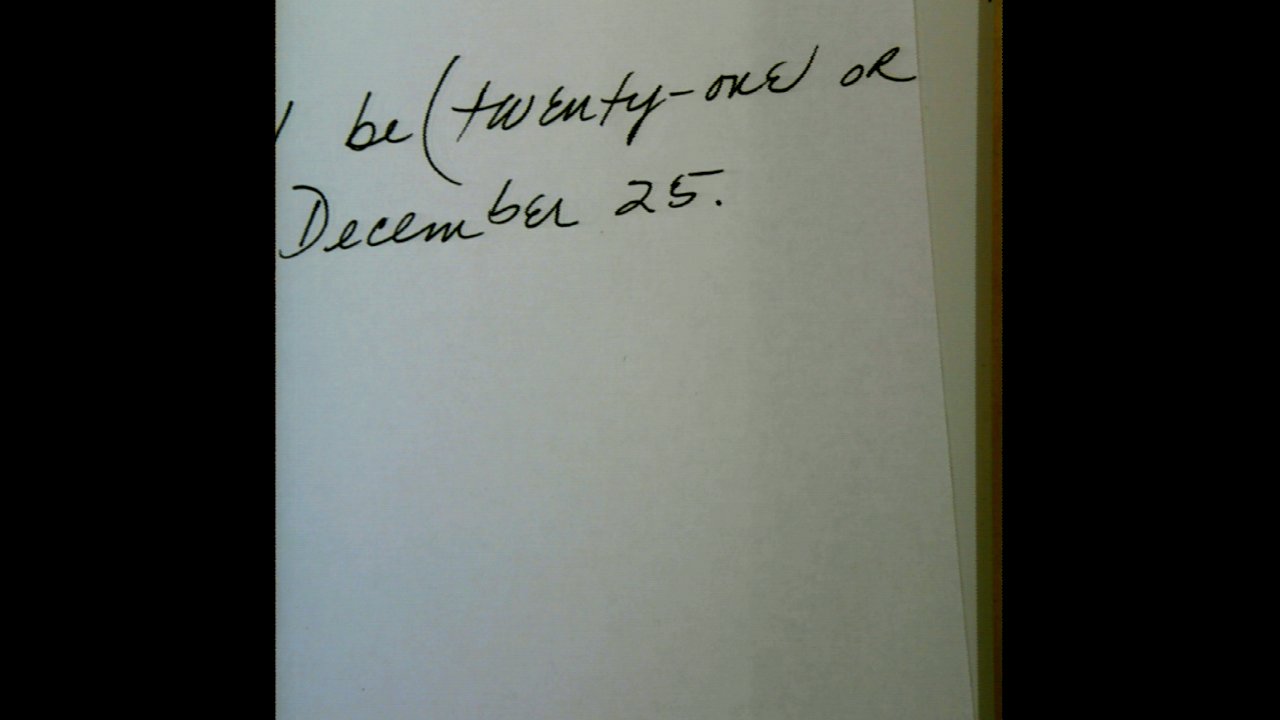 be (twenty-one) or
December 25.